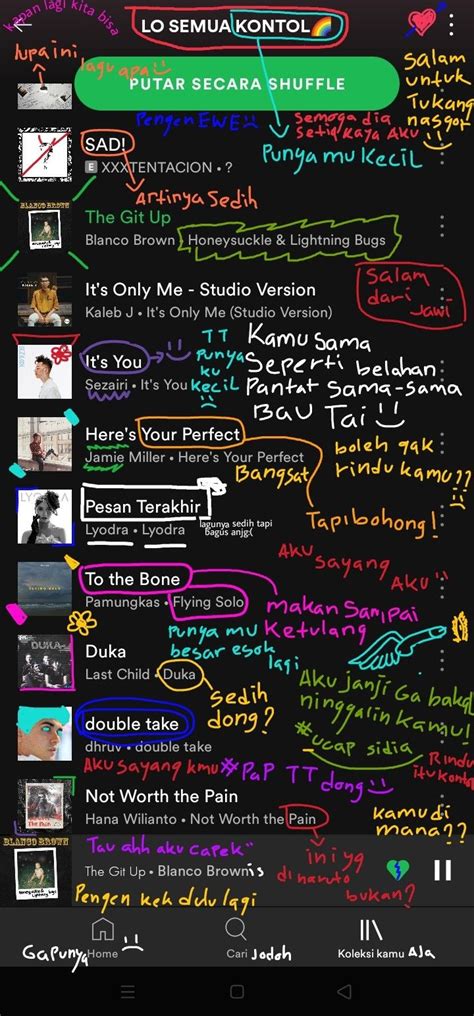 Kapan lagi kita bisa
LO SEMUA KONTOL🌈
lupa ini
lagu apa
PUTAR SECARA SHUFFLE
Salam
untuk
Tukang
nasgor
Pengen EWE
Semoga dia
setia kaya AKU
Punya mu Kecil
SAD!
E XXXTENTACION • ?
Artinya Sedih
The Git Up
Blanco Brown • Honeysuckle & Lightning Bugs
It's Only Me - Studio Version
Kaleb J • It's Only Me (Studio Version)
Salam
dari
Jawi
It's You
Sezairi • It's You
TT
Punya
ku
kecil
Kamu sama
Seperti belahan
Pantat sama-sama
Bau Tai
Here's Your Perfect
Jamie Miller • Here's Your Perfect
Bangsat
boleh gak
rindu kamu??
Tapi bohong!
Pesan Terakhir
Lyodra • Lyodra
lagunya sedih tapi
bagus anjg:(
AKU
sayang
AKU
To the Bone
Pamungkas • Flying Solo
makan Sampai
Ketulang
Punya mu
besar esok
lagi
Duka
Last Child • Duka
sedih
dong?
Aku janji Ga bakal
ninggalin Kamu!
#ucap sidia
double take
dhruv • double take
AKu sayang kmu
#PaP TT
dong
Rindu
itu kontol
Not Worth the Pain
Hana Wilianto • Not Worth the Pain
kamu di
mana??
BLANCO BROWN
Tau ahh aku capek"
The Git Up • Blanco Brown is
ini yg
di naruto
bukan?
Pengen kek dulu lagi
Gapunya Home
Cari Jodoh
Koleksi kamu AJa